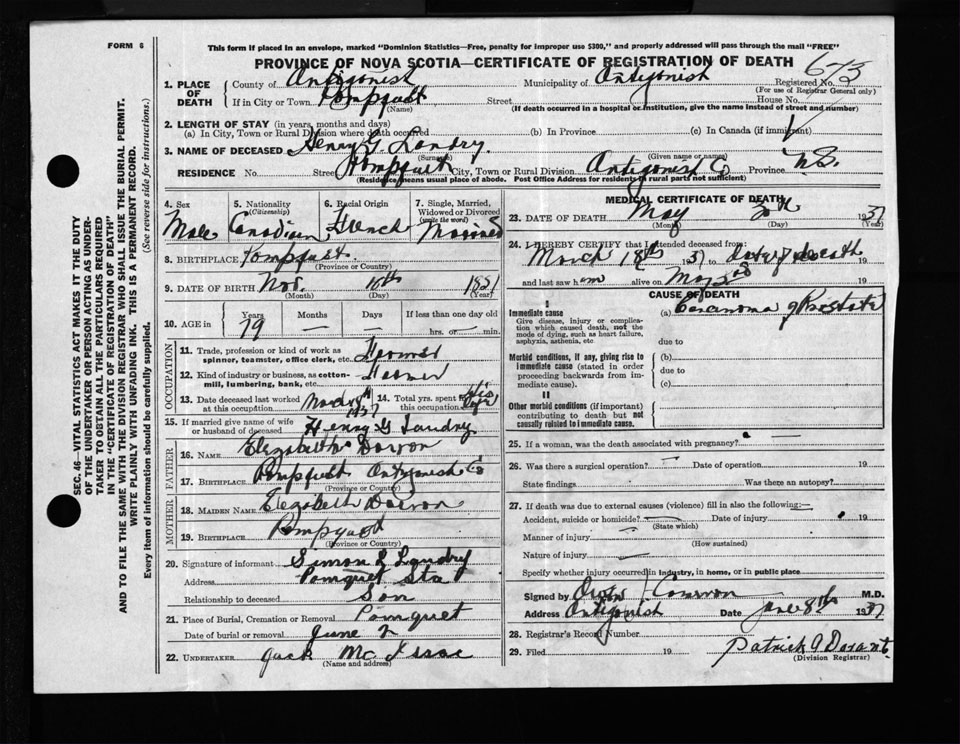 FORM 6
This form if placed in an envelope, marked "Dominion Statistics—Free, penalty for improper use $300," and properly addressed will pass through the mail "FREE"
PROVINCE OF NOVA SCOTIA—CERTIFICATE OF REGISTRATION OF DEATH
1. PLACE OF DEATH County of Antigonish Municipality of Antigonish Registered No.
(For use of Registrar General only)
If in City or Town Street House No.
(Name) (If death occurred in a hospital or institution, give the name instead of street and number)
2. LENGTH OF STAY (in years, months and days)
(a) In City, Town or Rural Division where death occurred (b) In Province (c) In Canada (if immigrant)
3. NAME OF DECEASED Henry G. Landry
(Surname) (Given name or names)
RESIDENCE No. Street City, Town or Rural Division Antigonish Co Province N.S.
(Residence means usual place of abode. Post Office Address for residents in rural parts not sufficient)
4. Sex Male
5. Nationality (Citizenship) Canadian
6. Racial Origin French
7. Single, Married, Widowed or Divorced (write the word) Married
8. BIRTHPLACE
(Province or Country)
9. DATE OF BIRTH Nov. 10th
(Month) (Day) (Year)
10. AGE in Years 79 Months — Days — If less than one day hrs. or min.
OCCUPATION
11. Trade, profession or kind of work as spinner, teamster, office clerk, etc. Farmer
12. Kind of industry or business, as cotton-mill, lumbering, bank, etc.
13. Date deceased last worked at this occupation
14. Total yrs. spent in this occupation His life
15. If married give name of wife or husband of deceased Henry G Landry
FATHER
16. NAME Elizabeth
17. BIRTHPLACE Antigonish Co
(Province or Country)
MOTHER
18. MAIDEN NAME Elizabeth
19. BIRTHPLACE
(Province or Country)
20. Signature of informant Simon L Landry
Address Pomquet Sta
Relationship to deceased Son
21. Place of Burial, Cremation or Removal Pomquet
Date of burial or removal June 2
22. UNDERTAKER Jack Mc Isaac
(Name and address)
MEDICAL CERTIFICATE OF DEATH
23. DATE OF DEATH May 1937
(Month) (Day) (Year)
24. I HEREBY CERTIFY that I attended deceased from
March 18th 1937 to date of death 19
and last saw him alive on May 19
CAUSE OF DEATH
I
Immediate cause (a) Carcinoma of Prostate
Give disease, injury or complication which caused death, not the mode of dying, such as heart failure, asphyxia, asthenia, etc.
due to
Morbid conditions, if any, giving rise to immediate cause (stated in order proceeding backwards from immediate cause).
(b)
due to
(c)
II
Other morbid conditions (if important) contributing to death but not causally related to immediate cause.
25. If a woman, was the death associated with pregnancy?
26. Was there a surgical operation? Date of operation 19
State findings Was there an autopsy?
27. If death was due to external causes (violence) fill in also the following:—
Accident, suicide or homicide? Date of injury 19
(State which)
Manner of injury
(How sustained)
Nature of injury
Specify whether injury occurred in industry, in home, or in public place
Signed by M.D.
Address Antigonish Date June 8th 1937
28. Registrar's Record Number
29. Filed 19 Patrick
(Division Registrar)
SEC. 46—VITAL STATISTICS ACT MAKES IT THE DUTY
OF THE UNDERTAKER OR PERSON ACTING AS UNDER-
TAKER TO OBTAIN ALL THE PARTICULARS REQUIRED
IN THE "CERTIFICATE OF REGISTRATION OF DEATH"
AND TO FILE THE SAME WITH THE DIVISION REGISTRAR WHO SHALL ISSUE THE BURIAL PERMIT.
WRITE PLAINLY WITH UNFADING INK. THIS IS A PERMANENT RECORD.
Every item of information should be carefully supplied. (See reverse side for instructions.)